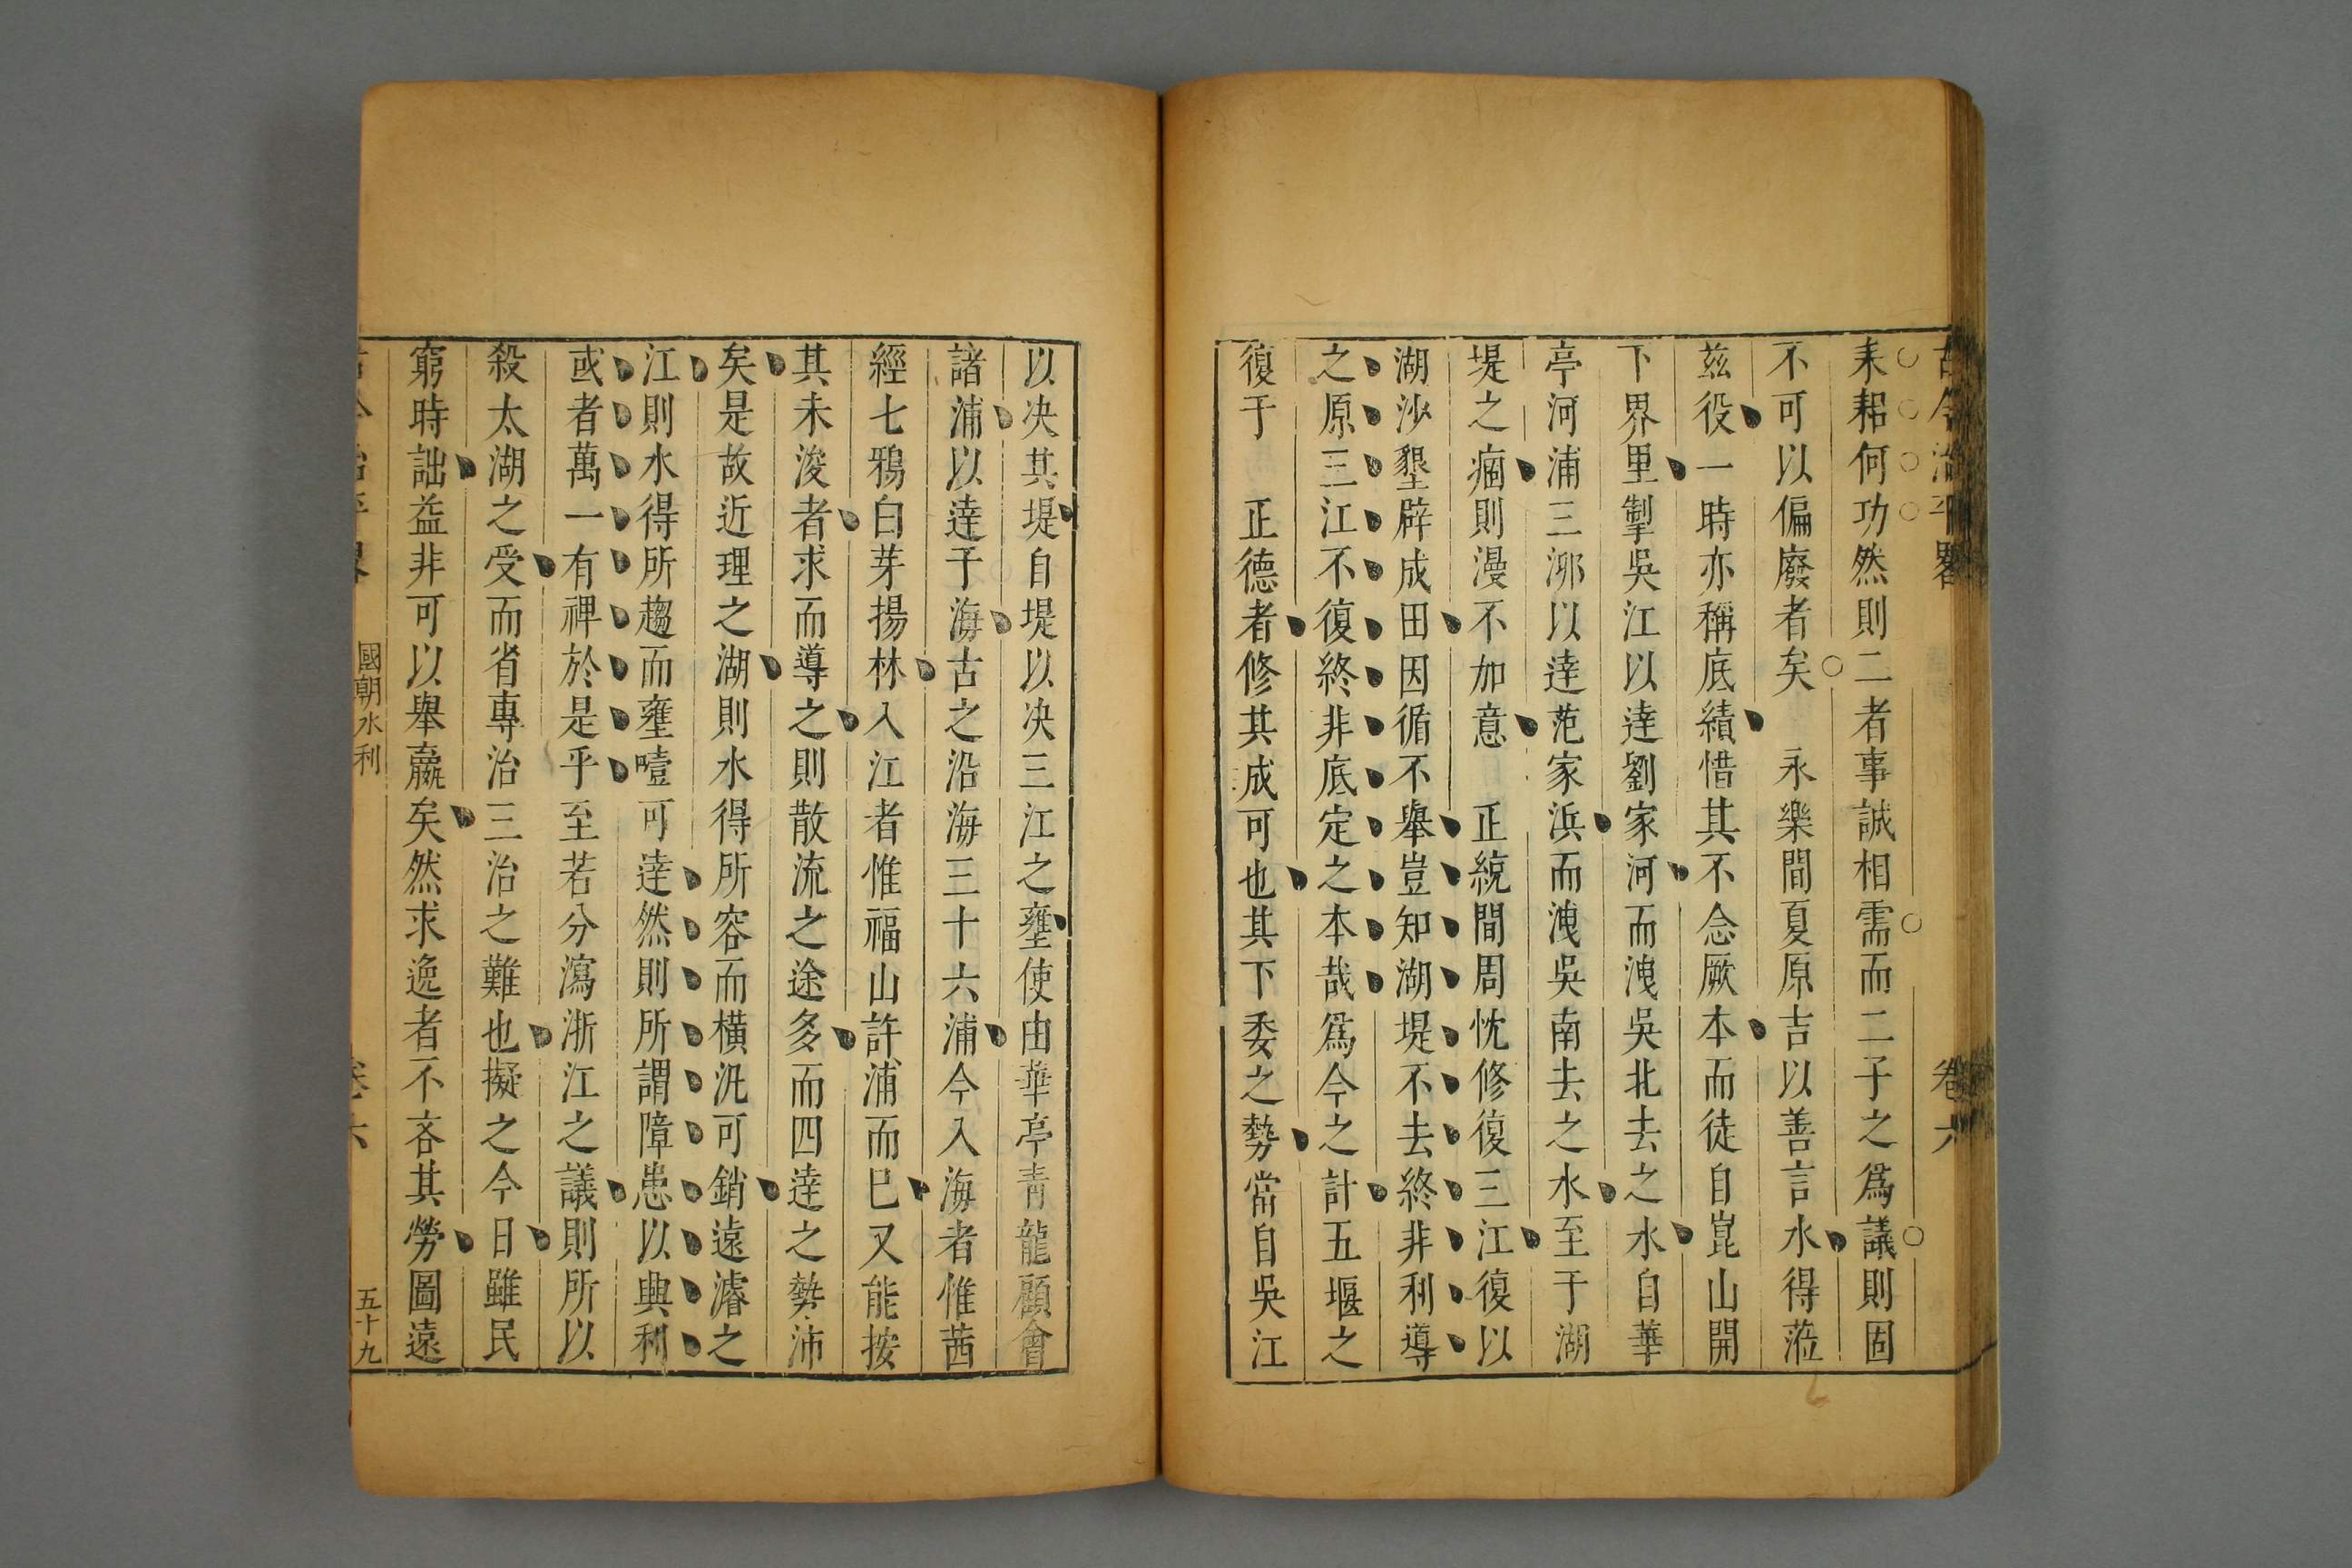 古今治平畧 卷六
耒耜何功然則二者事誠相需而二子之爲議則固
不可以偏廢者矣 永樂間夏原吉以善言水得蒞
茲役一時亦稱底績惜其不念厥本而徒自崑山開
下界里掣吳江以逹劉家河而洩吳北去之水自華
亭河浦三泖以逹范家浜而洩吳南去之水至于湖
堤之痼則漫不加意 正統間周忱修復三江復以
湖沙墾辟成田因循不舉豈知湖堤不去終非利導
之原三江不復終非底定之本哉爲今之計五堰之
復于 正德者修其成可也其下委之勢當自吳江
以决其堤自堤以决三江之壅使由華亭青龍顧會
諸浦以逹于海古之沿海三十六浦今入海者惟茜
經七鴉白芽揚林入江者惟福山許浦而已又能按
其未浚者求而導之則散流之途多而四逹之勢沛
矣是故近理之湖則水得所容而橫汎可銷遠濬之
江則水得所趨而壅噎可逹然則所謂障患以興利
或者萬一有裨於是乎至若分瀉浙江之議則所以
殺太湖之受而省專治三治之難也擬之今日雖民
窮時詘益非可以舉羸矣然求逸者不吝其勞圖遠
國朝水利 卷六 五十九